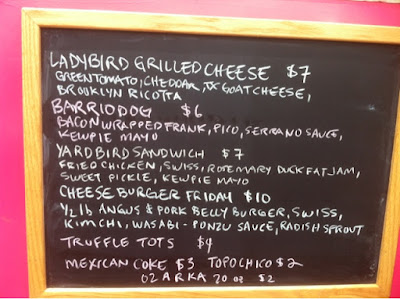 LADYBIRD GRILLED CHEESE $7
GREEN TOMATO, CHEDDAR, TX GOAT CHEESE,
BROOKLYN RICOTTA
BARRIO DOG $6
BACON WRAPPED FRANK, PICO, SERRANO SAUCE,
KEWPIE MAYO
YARDBIRD SANDWICH $7
FRIED CHICKEN, SWISS, ROSEMARY DUCK FAT JAM,
SWEET PICKLE, KEWPIE MAYO
CHEESE BURGER FRIDAY $10
1/2 lb ANGUS & PORK BELLY BURGER, SWISS,
KIMCHI, WASABI-PONZU SAUCE, RADISH SPROUT
TRUFFLE TOTS $4
MEXICAN COKE $3 TOPO CHICO $2
OZARKA 20 oz $2